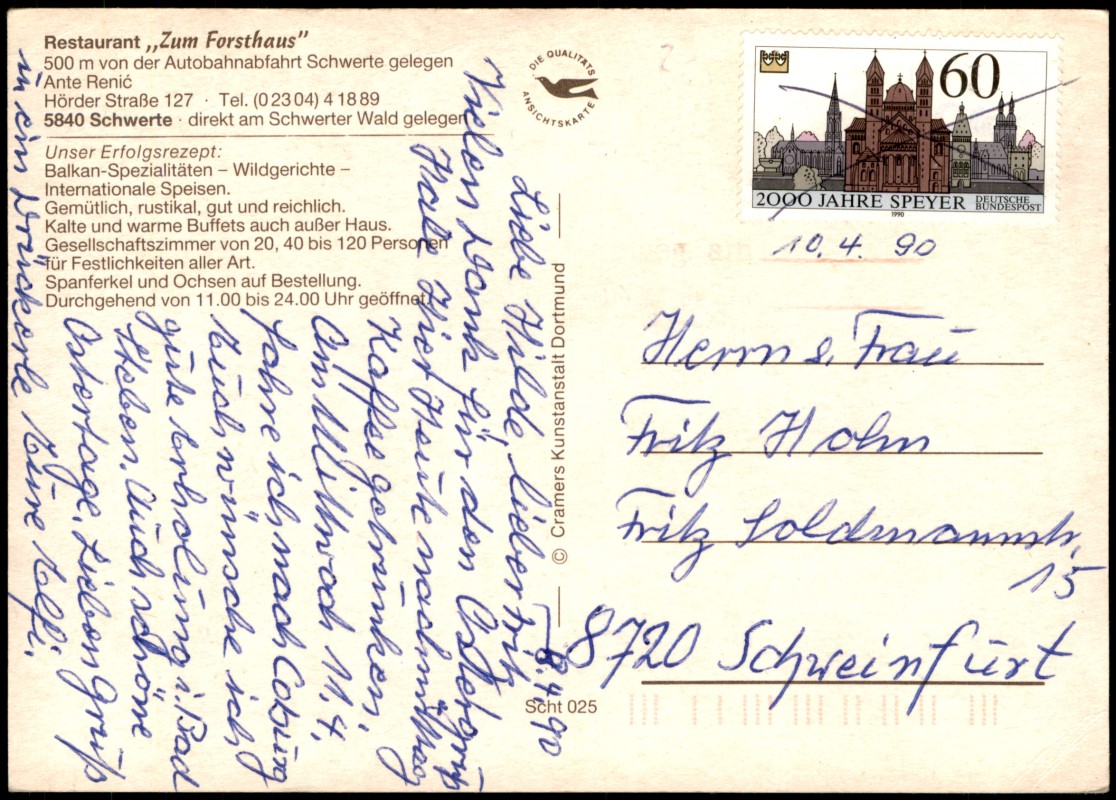 Restaurant „Zum Forsthaus"
500 m von der Autobahnabfahrt Schwerte gelegen
Ante Renić
Hörder Straße 127 · Tel. (0 23 04) 4 18 89
5840 Schwerte · direkt am Schwerter Wald gelegen
Unser Erfolgsrezept:
Balkan-Spezialitäten – Wildgerichte –
Internationale Speisen.
Gemütlich, rustikal, gut und reichlich.
Kalte und warme Buffets auch außer Haus.
Gesellschaftszimmer von 20, 40 bis 120 Personen
für Festlichkeiten aller Art.
Spanferkel und Ochsen auf Bestellung.
Durchgehend von 11.00 bis 24.00 Uhr geöffnet.
DIE QUALITÄTS
ANSICHTSKARTE
60
2000 JAHRE SPEYER
DEUTSCHE
BUNDESPOST
1990
10.4. 90
© Cramers Kunstanstalt Dortmund
Scht 025
8.4.90
Liebe Hilde, lieber Fritz
Vielen Dank für den Ostergruß
Habe hier heute nachmittag
Kaffee getrunken,
Am Mittwoch 11.4.
fahre ich nach Coburg
Euch wünsche ich
gute Erholung i. Bad
Steben. Auch schöne
Ostertage. Lieben Gruß
u. ein Drückerle Eure Elfi.
Herrn u. Frau
Fritz Hohn
Fritz Soldmannstr.
15
8720 Schweinfurt